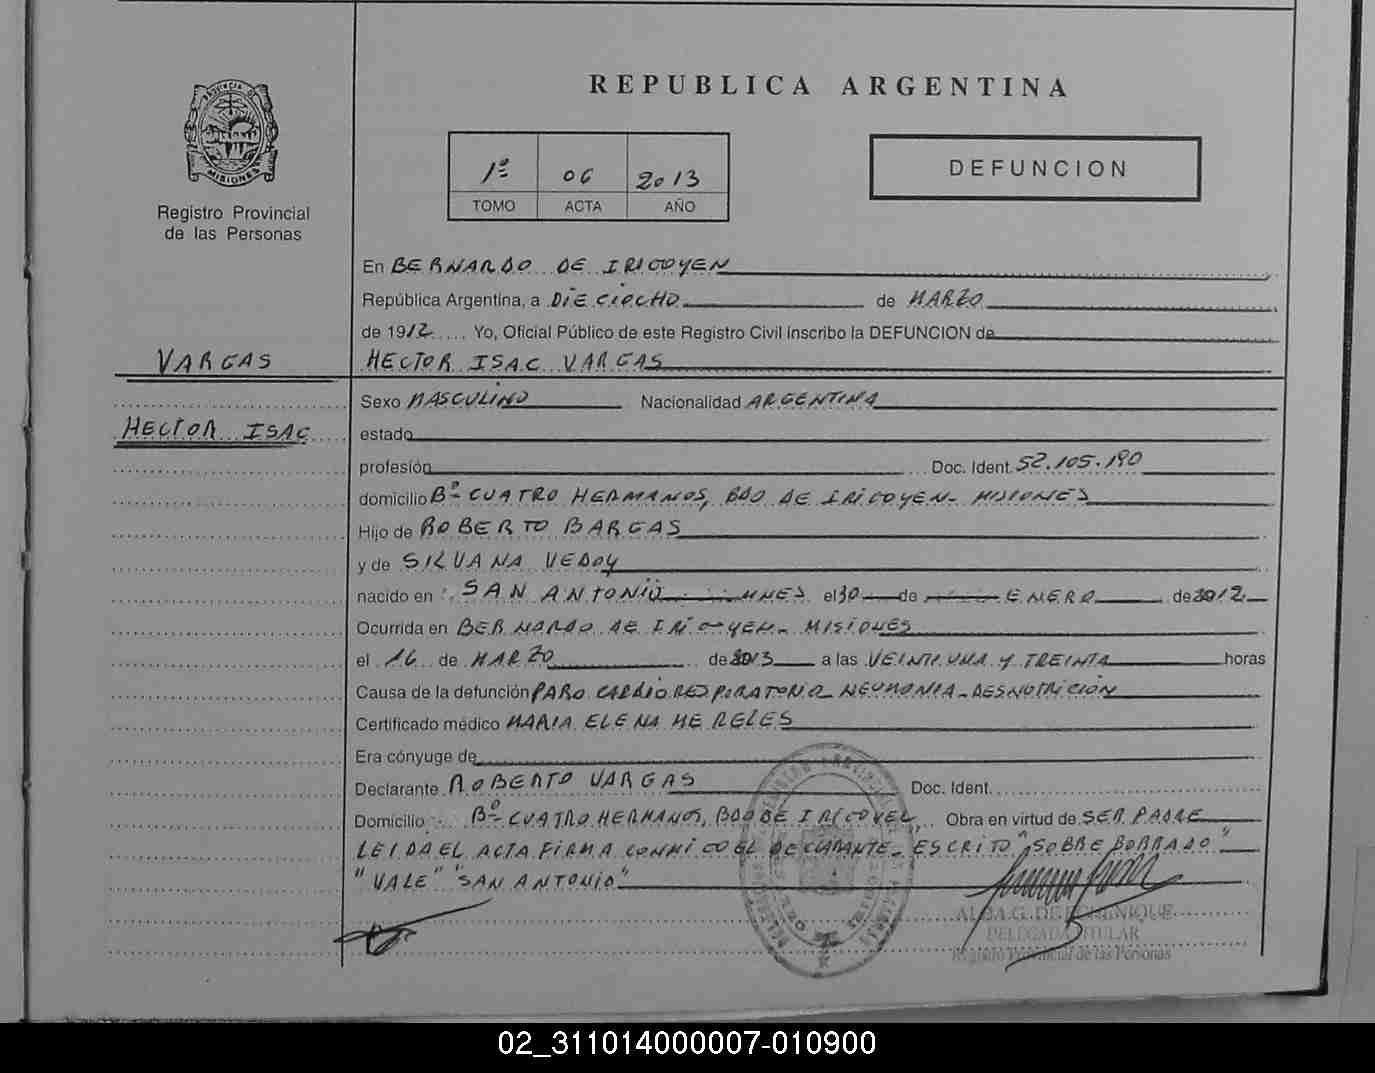 REPUBLICA ARGENTINA
PROVINCIA DE
MISIONES
Registro Provincial
de las Personas
1º 06 2013
TOMO ACTA AÑO
DEFUNCION
En BERNARDO DE IRIGOYEN
República Argentina, a DIECIOCHO de MARZO
de 1912 Yo, Oficial Público de este Registro Civil inscribo la DEFUNCION de
VARGAS
HECTOR ISAC VARGAS
Sexo MASCULINO Nacionalidad ARGENTINA
HECTOR ISAC
estado
profesión Doc. Ident. 52.105.190
domicilio Bº CUATRO HERMANOS, BDO DE IRIGOYEN - MISIONES
Hijo de ROBERTO BARGAS
y de SILVANA VEDOY
nacido en SAN ANTONIO MNES el 30 de ENERO de 2012
Ocurrida en BERNARDO DE IRIGOYEN - MISIONES
el 16 de MARZO de 2013 a las VEINTIUNA Y TREINTA horas
Causa de la defunción PARO CARDIORESPIRATORIO - NEUMONIA - DESNUTRICION
Certificado médico MARIA ELENA MERELES
Era cónyuge de
Declarante ROBERTO VARGAS Doc. Ident.
Domicilio Bº CUATRO HERMANOS, BDO DE IRIGOYEL Obra en virtud de SER PADRE
LEIDA EL ACTA FIRMA CONMIGO EL DECLARANTE - ESCRITO "SOBRE BORRADO"
"VALE" "SAN ANTONIO"
DELEGADA TITULAR
Registro Provincial de las Personas
02_311014000007-010900